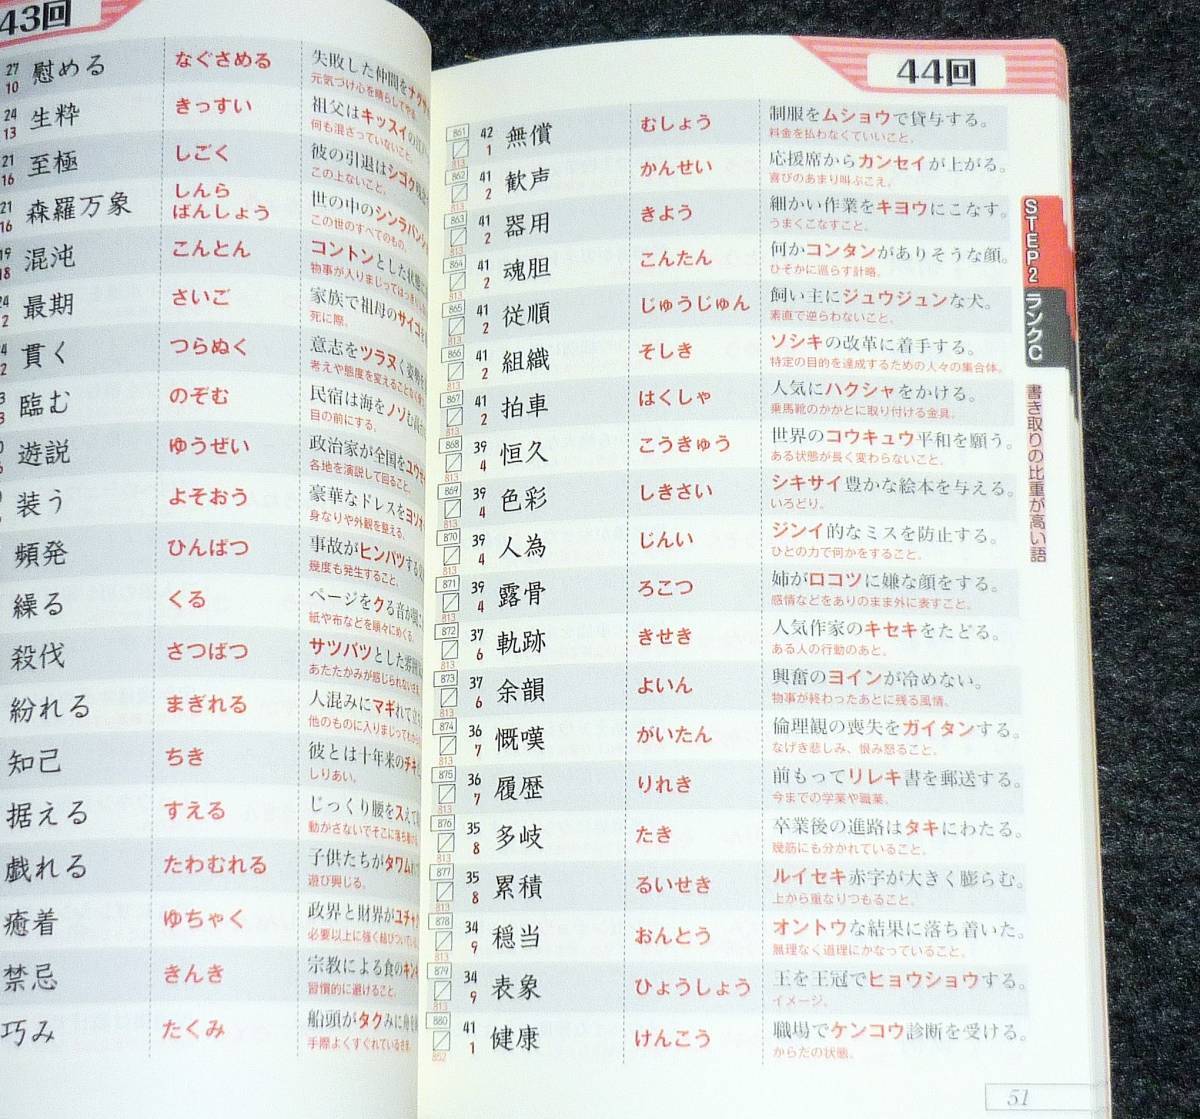 43回
27
10
慰める
なぐさめる
失敗した仲間をナグサ
元気づけ心を晴らしてやる。
24
13
生粋
きっすい
祖父はキッスイの
何も混ざっていないこと。
21
16
至極
しごく
彼の引退はシゴク
この上ないこと。
21
16
森羅万象
しんら
ばんしょう
世の中のシンラバンシ
この世のすべてのもの。
19
18
混沌
こんとん
コントンとした状態
物事が入りまじってはっき
24
2
最期
さいご
家族で祖母のサイゴ
死に際。
貫く
つらぬく
意志をツラヌく姿勢
考えや態度を変えることなく
臨む
のぞむ
民宿は海をノゾむ
目の前にする。
遊説
ゆうぜい
政治家が全国をユウゼ
各地を演説して回ること。
装う
よそおう
豪華なドレスをヨソオ
身なりや外観を整える。
頻発
ひんぱつ
事故がヒンパツする
幾度も発生すること。
繰る
くる
ページをクる音が
紙や布などを順々にめくる。
殺伐
さつばつ
サツバツとした雰囲
あたたかみが感じられない
紛れる
まぎれる
人混みにマギれて
他のものに入りまじってわから
知己
ちき
彼とは十年来のチキ
しりあい。
据える
すえる
じっくり腰をスえて
動かさないでそこに落ち着
戯れる
たわむれる
子供たちがタワムれ
遊び興じる。
癒着
ゆちゃく
政界と財界がユチャ
必要以上に強く結びついている
禁忌
きんき
宗教による食のキン
習慣的に避けること。
巧み
たくみ
船頭がタクみに舟を
手際よくすぐれているさま。
44回
861
813
42
1
無償
むしょう
制服をムショウで貸与する。
料金を払わなくていいこと。
862
813
41
2
歓声
かんせい
応援席からカンセイが上がる。
喜びのあまり叫ぶこえ。
863
813
41
2
器用
きよう
細かい作業をキヨウにこなす。
うまくこなすこと。
864
813
41
2
魂胆
こんたん
何かコンタンがありそうな顔。
ひそかに巡らす計略。
865
813
41
2
従順
じゅうじゅん
飼い主にジュウジュンな犬。
素直で逆らわないこと。
866
813
41
2
組織
そしき
ソシキの改革に着手する。
特定の目的を達成するための人々の集合体。
867
813
41
2
拍車
はくしゃ
人気にハクシャをかける。
乗馬靴のかかとに取り付ける金具。
868
813
39
4
恒久
こうきゅう
世界のコウキュウ平和を願う。
ある状態が長く変わらないこと。
869
813
39
4
色彩
しきさい
シキサイ豊かな絵本を与える。
いろどり。
870
813
39
4
人為
じんい
ジンイ的なミスを防止する。
ひとの力で何かをすること。
871
813
39
4
露骨
ろこつ
姉がロコツに嫌な顔をする。
感情などをありのまま外に表すこと。
872
813
37
6
軌跡
きせき
人気作家のキセキをたどる。
ある人の行動のあと。
873
813
37
6
余韻
よいん
興奮のヨインが冷めない。
物事が終わったあとに残る風情。
874
813
36
7
慨嘆
がいたん
倫理観の喪失をガイタンする。
なげき悲しみ、恨み怒ること。
875
813
36
7
履歴
りれき
前もってリレキ書を郵送する。
今までの学業や職業。
876
813
35
8
多岐
たき
卒業後の進路はタキにわたる。
幾筋にも分かれていること。
877
813
35
8
累積
るいせき
ルイセキ赤字が大きく膨らむ。
上から重なりつもること。
878
813
34
9
穏当
おんとう
オントウな結果に落ち着いた。
無理なく道理にかなっていること。
879
813
34
9
表象
ひょうしょう
王を王冠でヒョウショウする。
イメージ。
880
852
41
1
健康
けんこう
職場でケンコウ診断を受ける。
からだの状態。
STEP2
ランクC
書き取りの比重が高い語
51